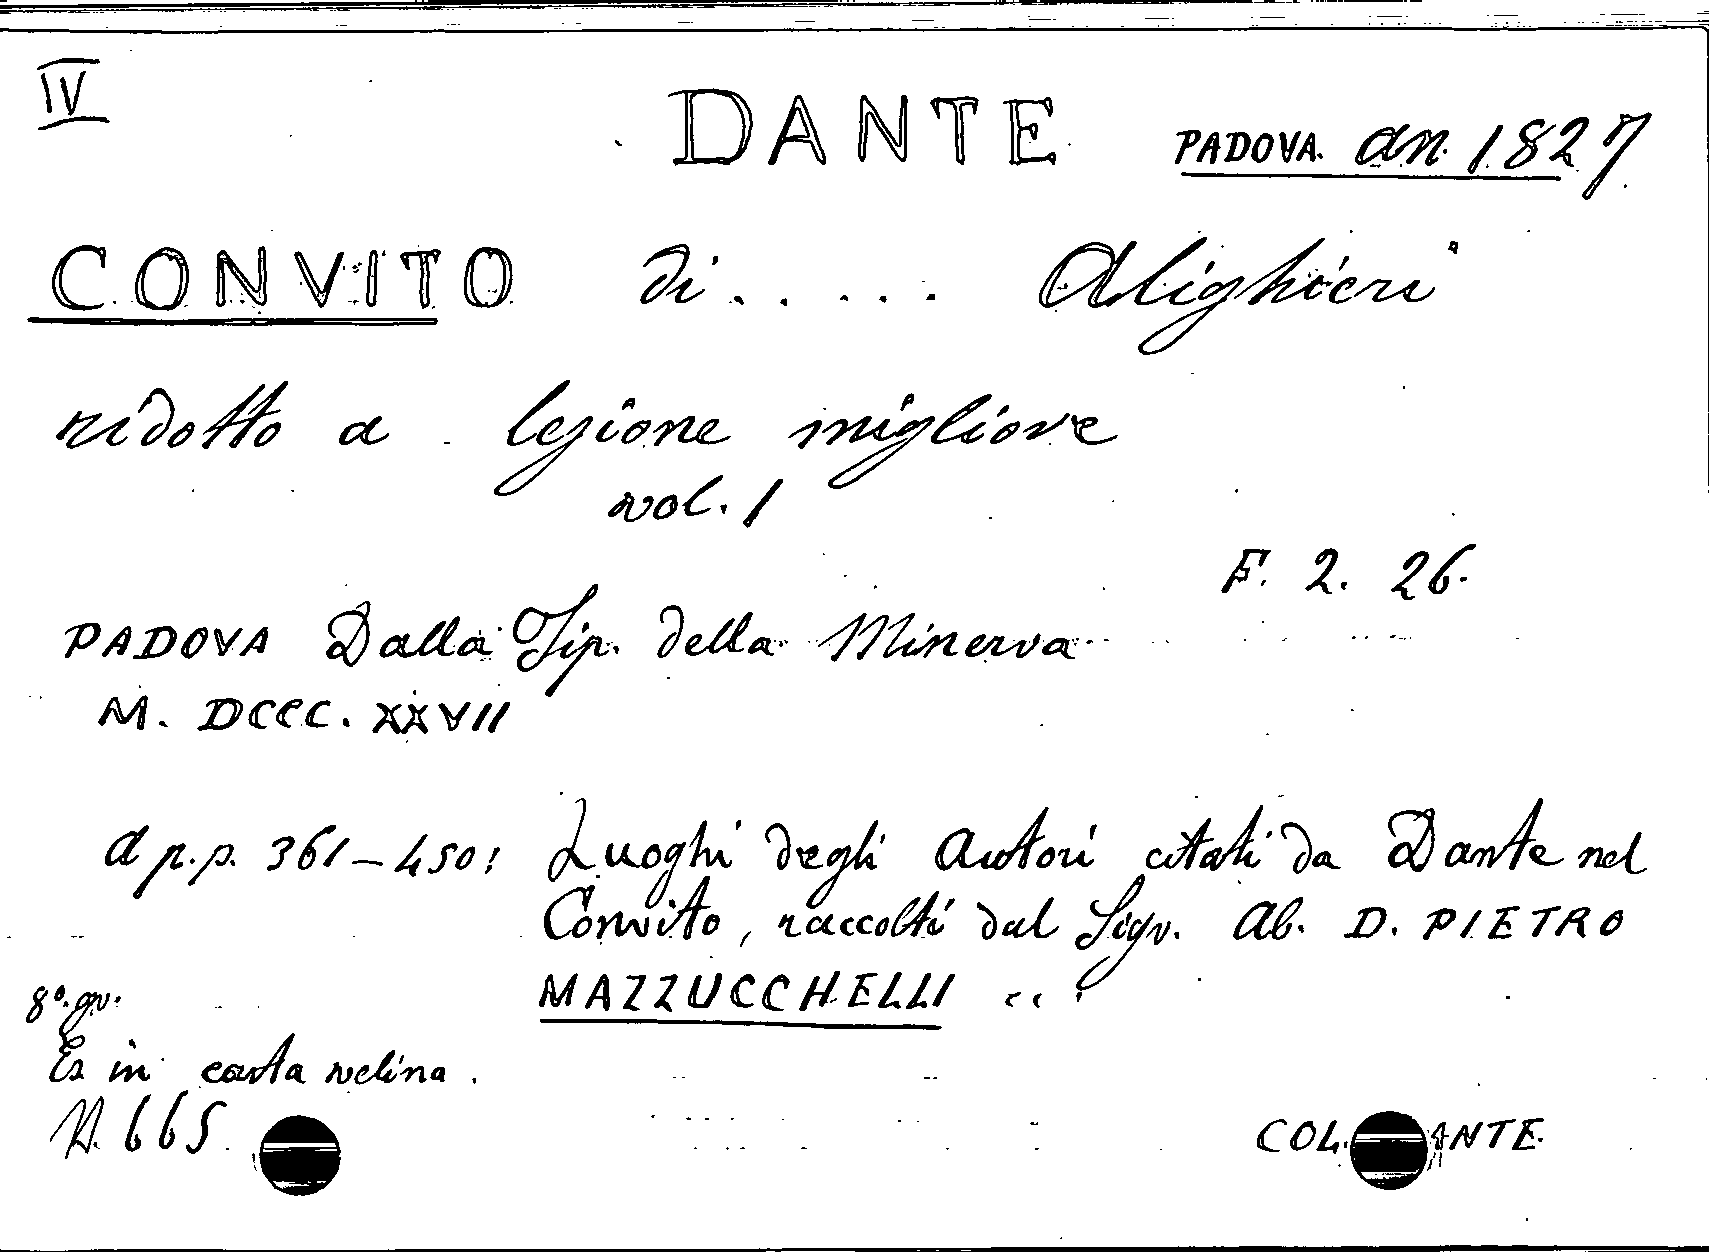 IV
DANTE PADOVA. an. 1827
CONVITO di..... Alighieri
ridotto a lezione migliore
vol. 1
F. 2. 26.
PADOVA Dalla Tip. della Minerva
M. DCCC. XXVII
a p.p. 361-450: Luoghi degli Autori citati da Dante nel
Convito, raccolti dal Sigr. Ab. D. PIETRO
MAZZUCCHELLI ...
8º. gr.
Es in carta velina.
N. 665
COL. ANTE